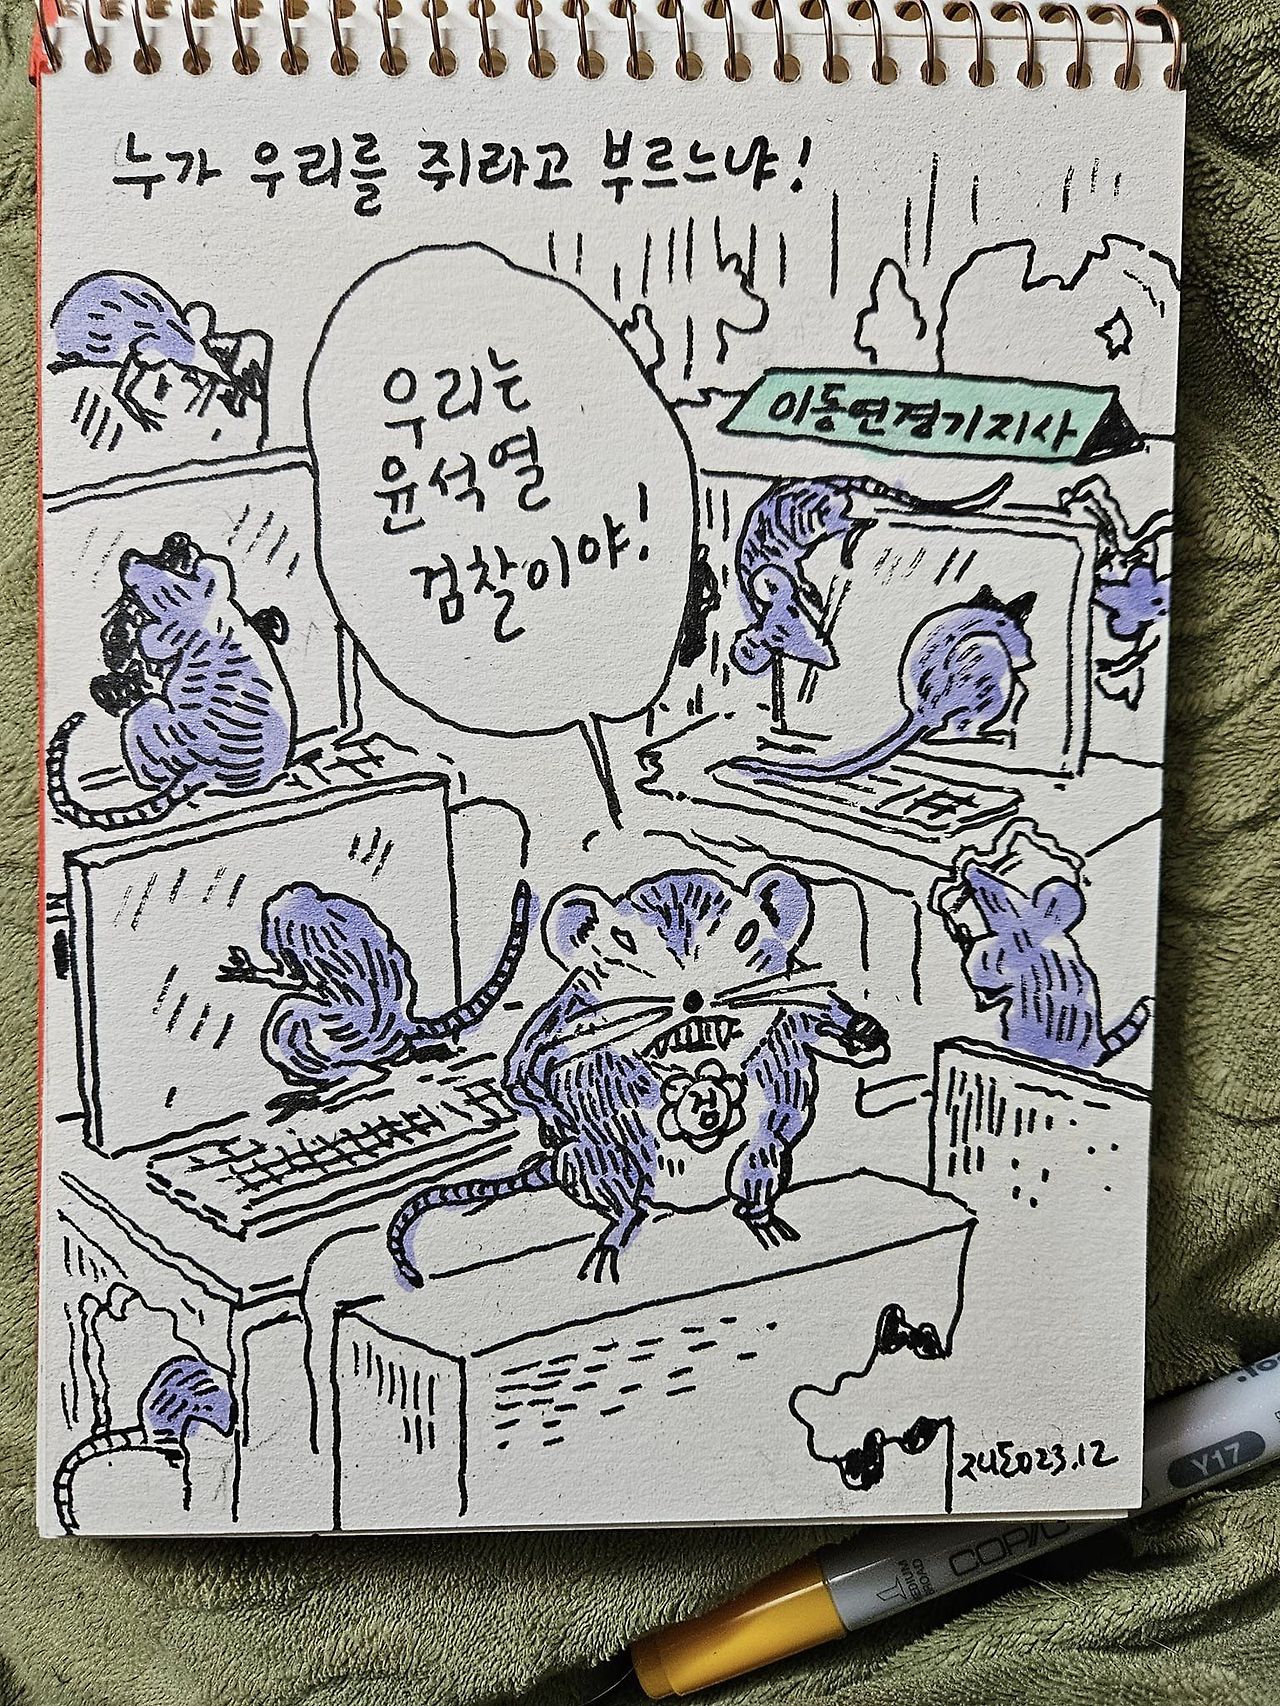 누가 우리를 쥐라고 부르느냐!
우리는
윤석열
검찰이야!
이동연경기지사
검
2023.12
Y17
COPIC
MEDIUM
BROAD